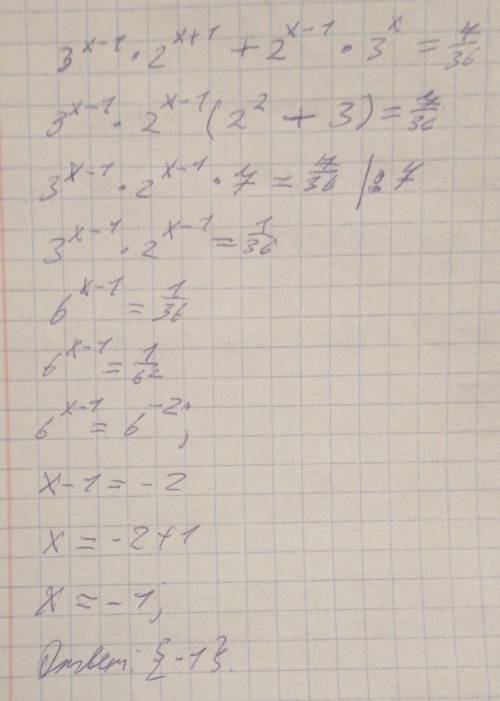 3^(x-1) · 2^(x+1) + 2^(x-1) · 3^x = 7/36
3^(x-1) · 2^(x-1) (2^2 + 3) = 7/36
3^(x-1) · 2^(x-1) · 7 = 7/36 | : 7
3^(x-1) · 2^(x-1) = 1/36
6^(x-1) = 1/36
6^(x-1) = 1/6^2
6^(x-1) = 6^(-2);
x-1 = -2
x = -2+1
x = -1;
Ответ: {-1}.